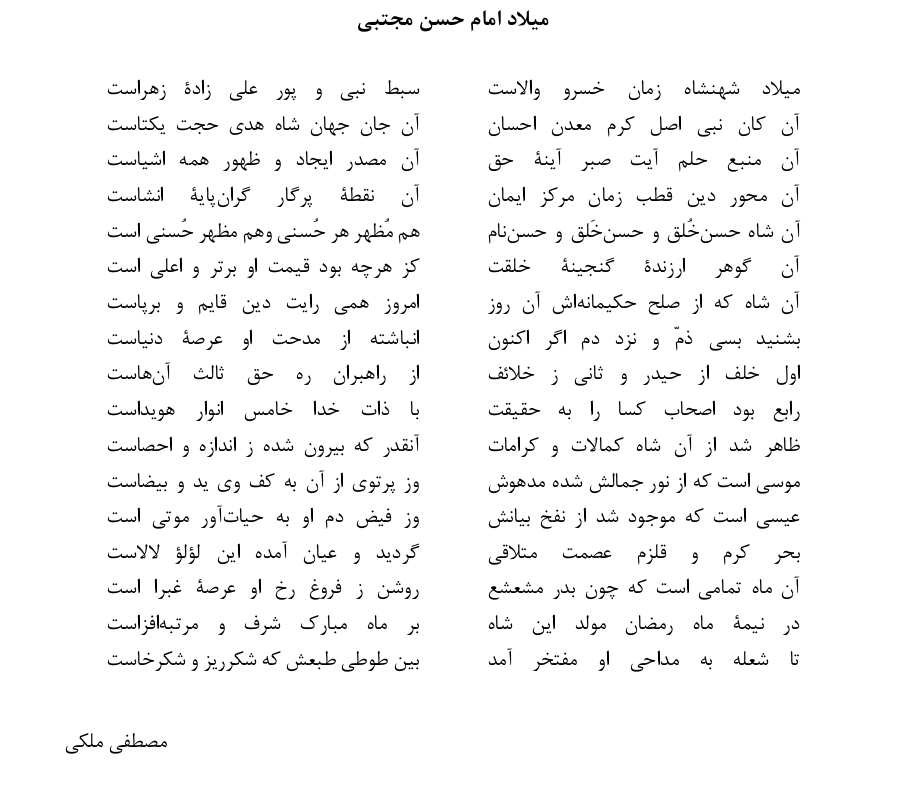 میلاد امام حسن مجتبی
میلاد شهنشاه زمان خسرو والاست سبط نبی و پور علی زادهٔ زهراست
آن کان نبی اصل کرم معدن احسان آن جان جهان شاه هدی حجت یکتاست
آن منبع حلم آیت صبر آینهٔ حق آن مصدر ایجاد و ظهور همه اشیاست
آن محور دین قطب زمان مرکز ایمان آن نقطهٔ پرگار گران‌پایهٔ انشاست
آن شاه حسن‌خُلق و حسن‌خَلق و حسن‌نام هم مُظهر هر حُسنی وهم مظهر حُسنی است
آن گوهر ارزندهٔ گنجینهٔ خلقت کز هرچه بود قیمت او برتر و اعلی است
آن شاه که از صلح حکیمانه‌اش آن روز امروز همی رایت دین قایم و برپاست
بشنید بسی ذمّ و نزد دم اگر اکنون انباشته از مدحت او عرصهٔ دنیاست
اول خلف از حیدر و ثانی ز خلائف از راهبران ره حق ثالث آن‌هاست
رابع بود اصحاب کسا را به حقیقت با ذات خدا خامس انوار هویداست
ظاهر شد از آن شاه کمالات و کرامات آنقدر که بیرون شده ز اندازه و احصاست
موسی است که از نور جمالش شده مدهوش وز پرتوی از آن به کف وی ید و بیضاست
عیسی است که موجود شد از نفخ بیانش وز فیض دم او به حیات‌آور موتی است
بحر کرم و قلزم عصمت متلاقی گردید و عیان آمده این لؤلؤ لالاست
آن ماه تمامی است که چون بدر مشعشع روشن ز فروغ رخ او عرصهٔ غبرا است
در نیمهٔ ماه رمضان مولد این شاه بر ماه مبارک شرف و مرتبه‌افزاست
تا شعله به مداحی او مفتخر آمد بین طوطی طبعش که شکرریز و شکرخاست
مصطفی ملکی